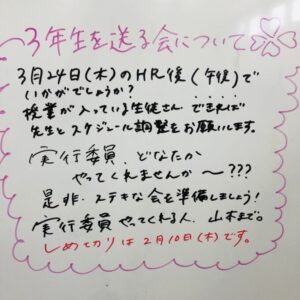 3年生を送る会について
3月24日(木)のHR後(午後)で
いかがでしょうか?
授業が入っている生徒さん できれば
先生とスケジュール調整をお願いします。
実行委員、どなたか
やってくれませんか〜???
是非、ステキな会を準備しましょう!
実行委員やってくれる人、山木まで。
しめきりは2月10日(木)です。